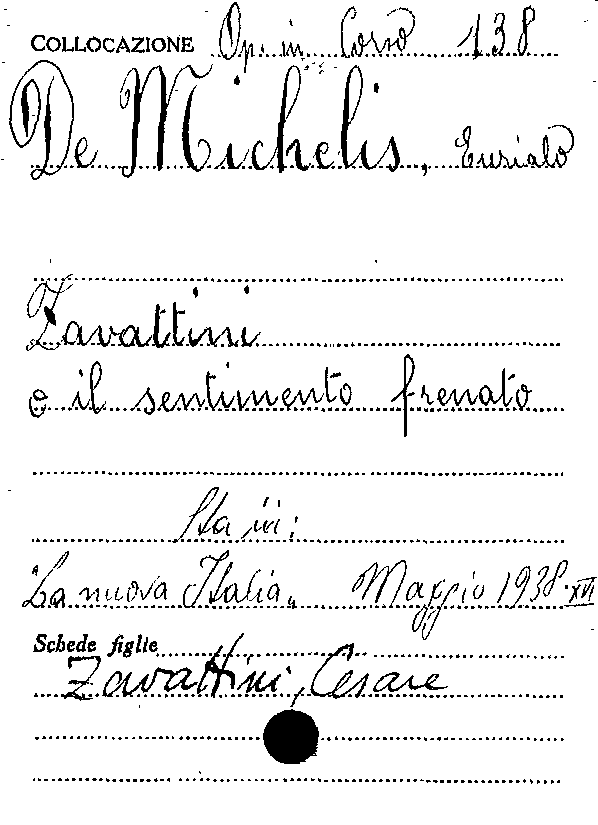 COLLOCAZIONE Op. in Corso 138
De Michelis, Eurialo
Zavattini
o il sentimento frenato
Sta in:
"La nuova Italia" Maggio 1938-XVI
Schede figlie
Zavattini, Cesare